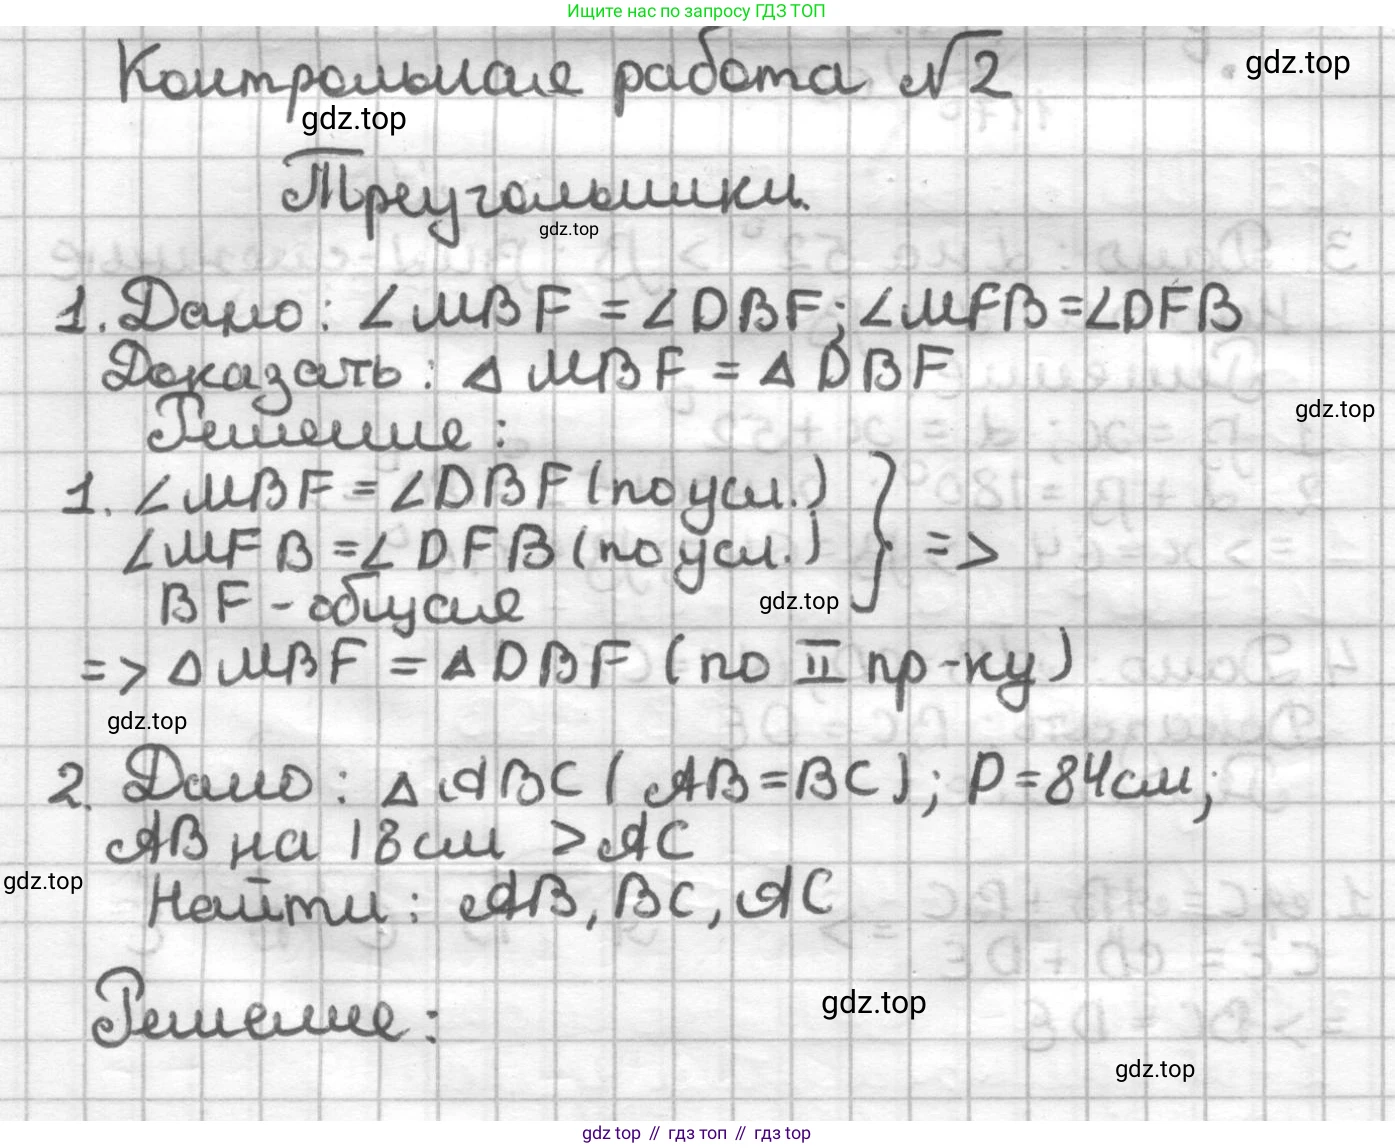 Ищите нас по запросу ГДЗ ТОП
Контрольная работа №2
gdz.top
gdz.top
Треугольники.
gdz.top
1. Дано: ∠MBF = ∠DBF; ∠MFB = ∠DFB
Доказать: △MBF = △DBF
gdz.top
Решение:
1. ∠MBF = ∠DBF (по усл.)
∠MFB = ∠DFB (по усл.) } =>
BF - общая
gdz.top
=> △MBF = △DBF (по II пр-ку)
gdz.top
2. Дано: △ABC (AB = BC); P = 84см;
AB на 18см > AC
gdz.top
Найти: AB, BC, AC
gdz.top
Решение:
gdz.top
gdz top // гдз топ // gdz top